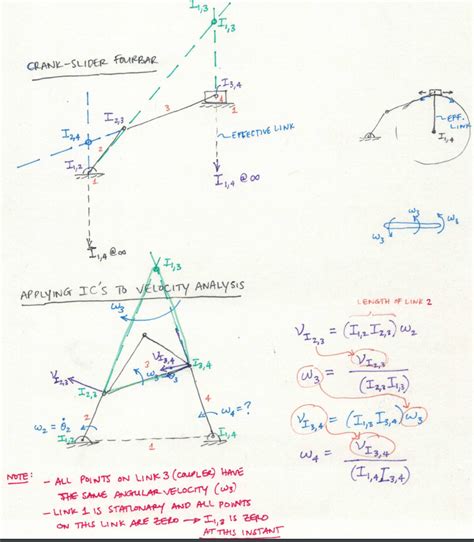 I1,3
I1,3
CRANK-SLIDER FOURBAR
I3,4
4
3
1
I2,3
I2,4
2
EFFECTIVE LINK
EFF. LINK
I1,4
I1,2
1
I1,4 @ ∞
ω3
ω3
I1,4 @ ∞
I1,3
APPLYING IC'S TO VELOCITY ANALYSIS
ω3
LENGTH OF LINK 2
V_I2,3 = (I1,2 I2,3) ω2
V_I3,4
3
I3,4
V_I2,3
ω3
ω3
ω3 = V_I2,3 / (I2,3 I1,3)
I2,3
2
4
V_I3,4 = (I1,3 I3,4) ω3
ω2 = θ̇2
ω4 = ?
I1,2
1
I1,4
ω4 = V_I3,4 / (I1,4 I3,4)
NOTE: - ALL POINTS ON LINK 3 (COUPLER) HAVE
THE SAME ANGULAR VELOCITY (ω3)
- LINK 1 IS STATIONARY AND ALL POINTS
ON THIS LINK ARE ZERO → I1,3 IS ZERO
AT THIS INSTANT